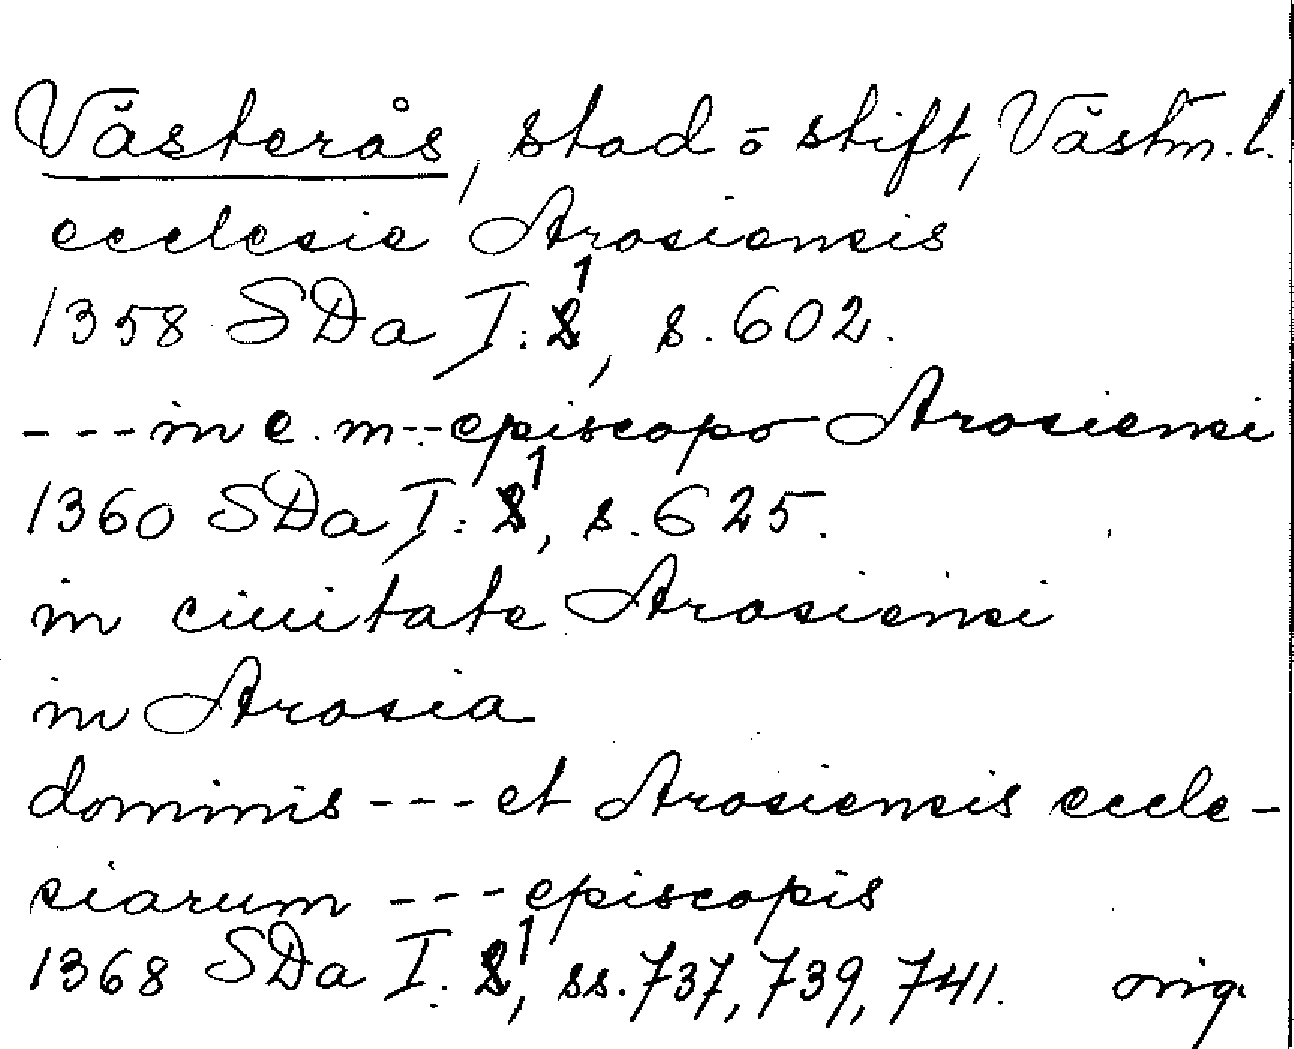 Västerås, stad o stift, Västm. l.
ecclesie Arosiensis
1358 SDa I: 1, s. 602.
--- in e. m -- episcopo Arosiensi
1360 SDa I: 1, s. 625.
in ciuitate Arosiensi
in Arosia
dominis --- et Arosiensis eccle-
siarum --- episcopis
1368 SDa I: 1, ss. 737, 739, 741. orig.